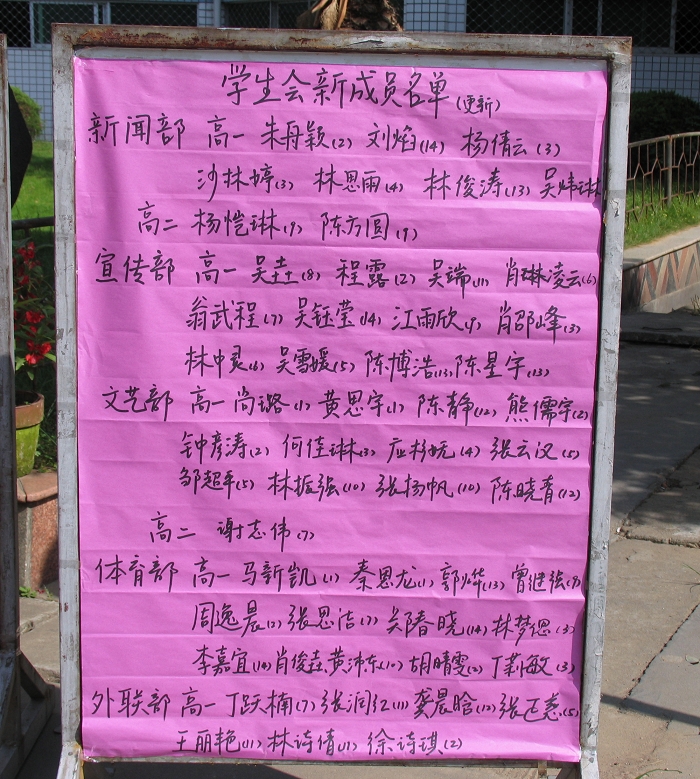 学生会新成员名单(更新)
新闻部 高一 朱舟颖(2) 刘焰(14) 杨倩云(3)
沙林婷(3) 林思雨(4) 林俊涛(13) 吴炜琳
高二 杨恺琳(9) 陈方圆(9)
宣传部 高一 吴垚(8) 程露(2) 吴瑞(11) 肖琳凌云(6)
翁武程(7) 吴钰莹(14) 江雨欣(9) 肖邵峰(3)
林中灵(6) 吴雪媛(5) 陈博浩(13) 陈星宇(13)
文艺部 高一 尚璐(1) 黄思宇(1) 陈静(12) 熊儒宇(2)
钟彦涛(2) 何佳琳(3) 应杉(4) 张云汉(5)
邹超平(5) 林振强(10) 张杨帆(10) 陈晓青(12)
高二 谢志伟(7)
体育部 高一 马新凯(1) 秦恩龙(1) 郭烨(13) 曾继强(7)
周逸晨(2) 张思洁(7) 吴春晓(14) 林梦恩(3)
李嘉宜(14) 肖俊垚 黄沛东(10) 胡晴雯(2) 丁莉敏(3)
外联部 高一 丁跃楠(7) 张润红(11) 龚晨晗(12) 张(5)
王丽艳(11) 林诗倩(11) 徐诗琪(2)